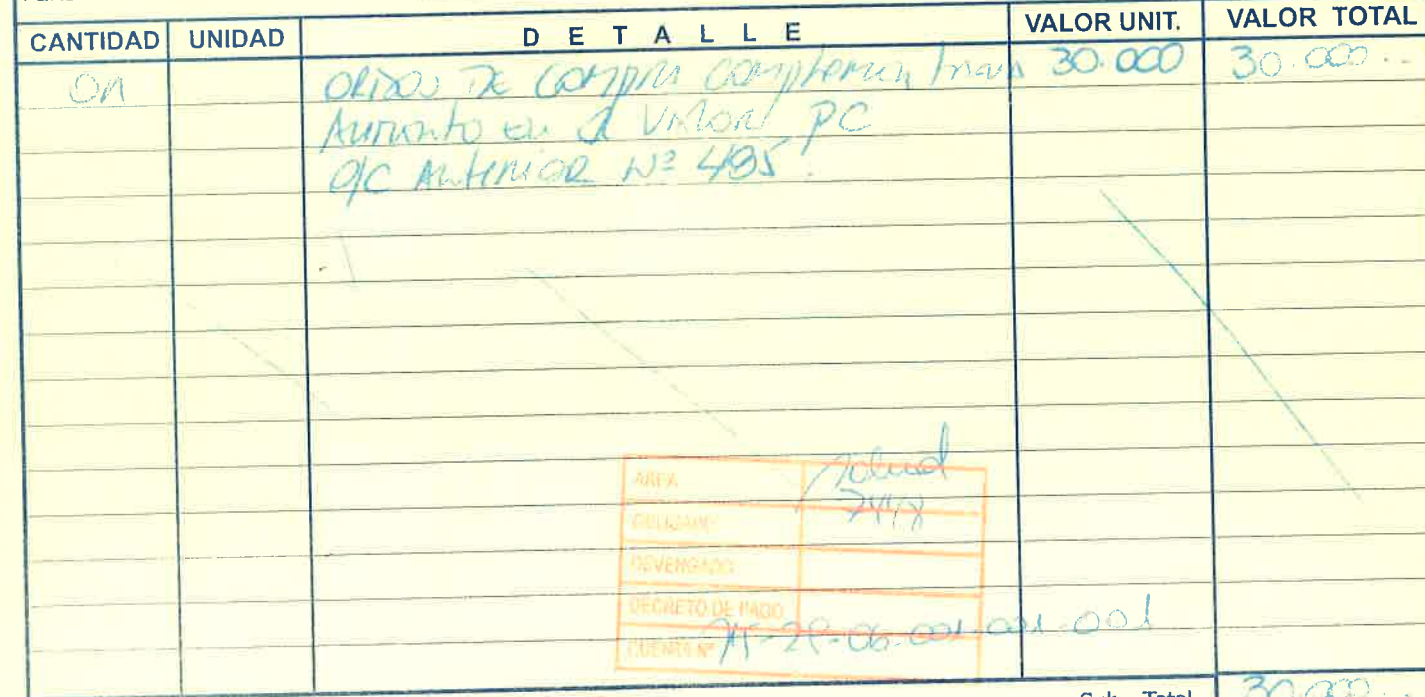 CANTIDAD UNIDAD DETALLE VALOR UNIT. VALOR TOTAL
01 ORDEN DE COMPRA 30.000 30.000.-
Aumento en el Valor PC
O/C Anterior Nº 485.
AREA Salud
OBLIGADO 7448
DEVENGADO
DECRETO DE PAGO
CUENTA Nº 06.001.001.001
Sub Total 30.000.-